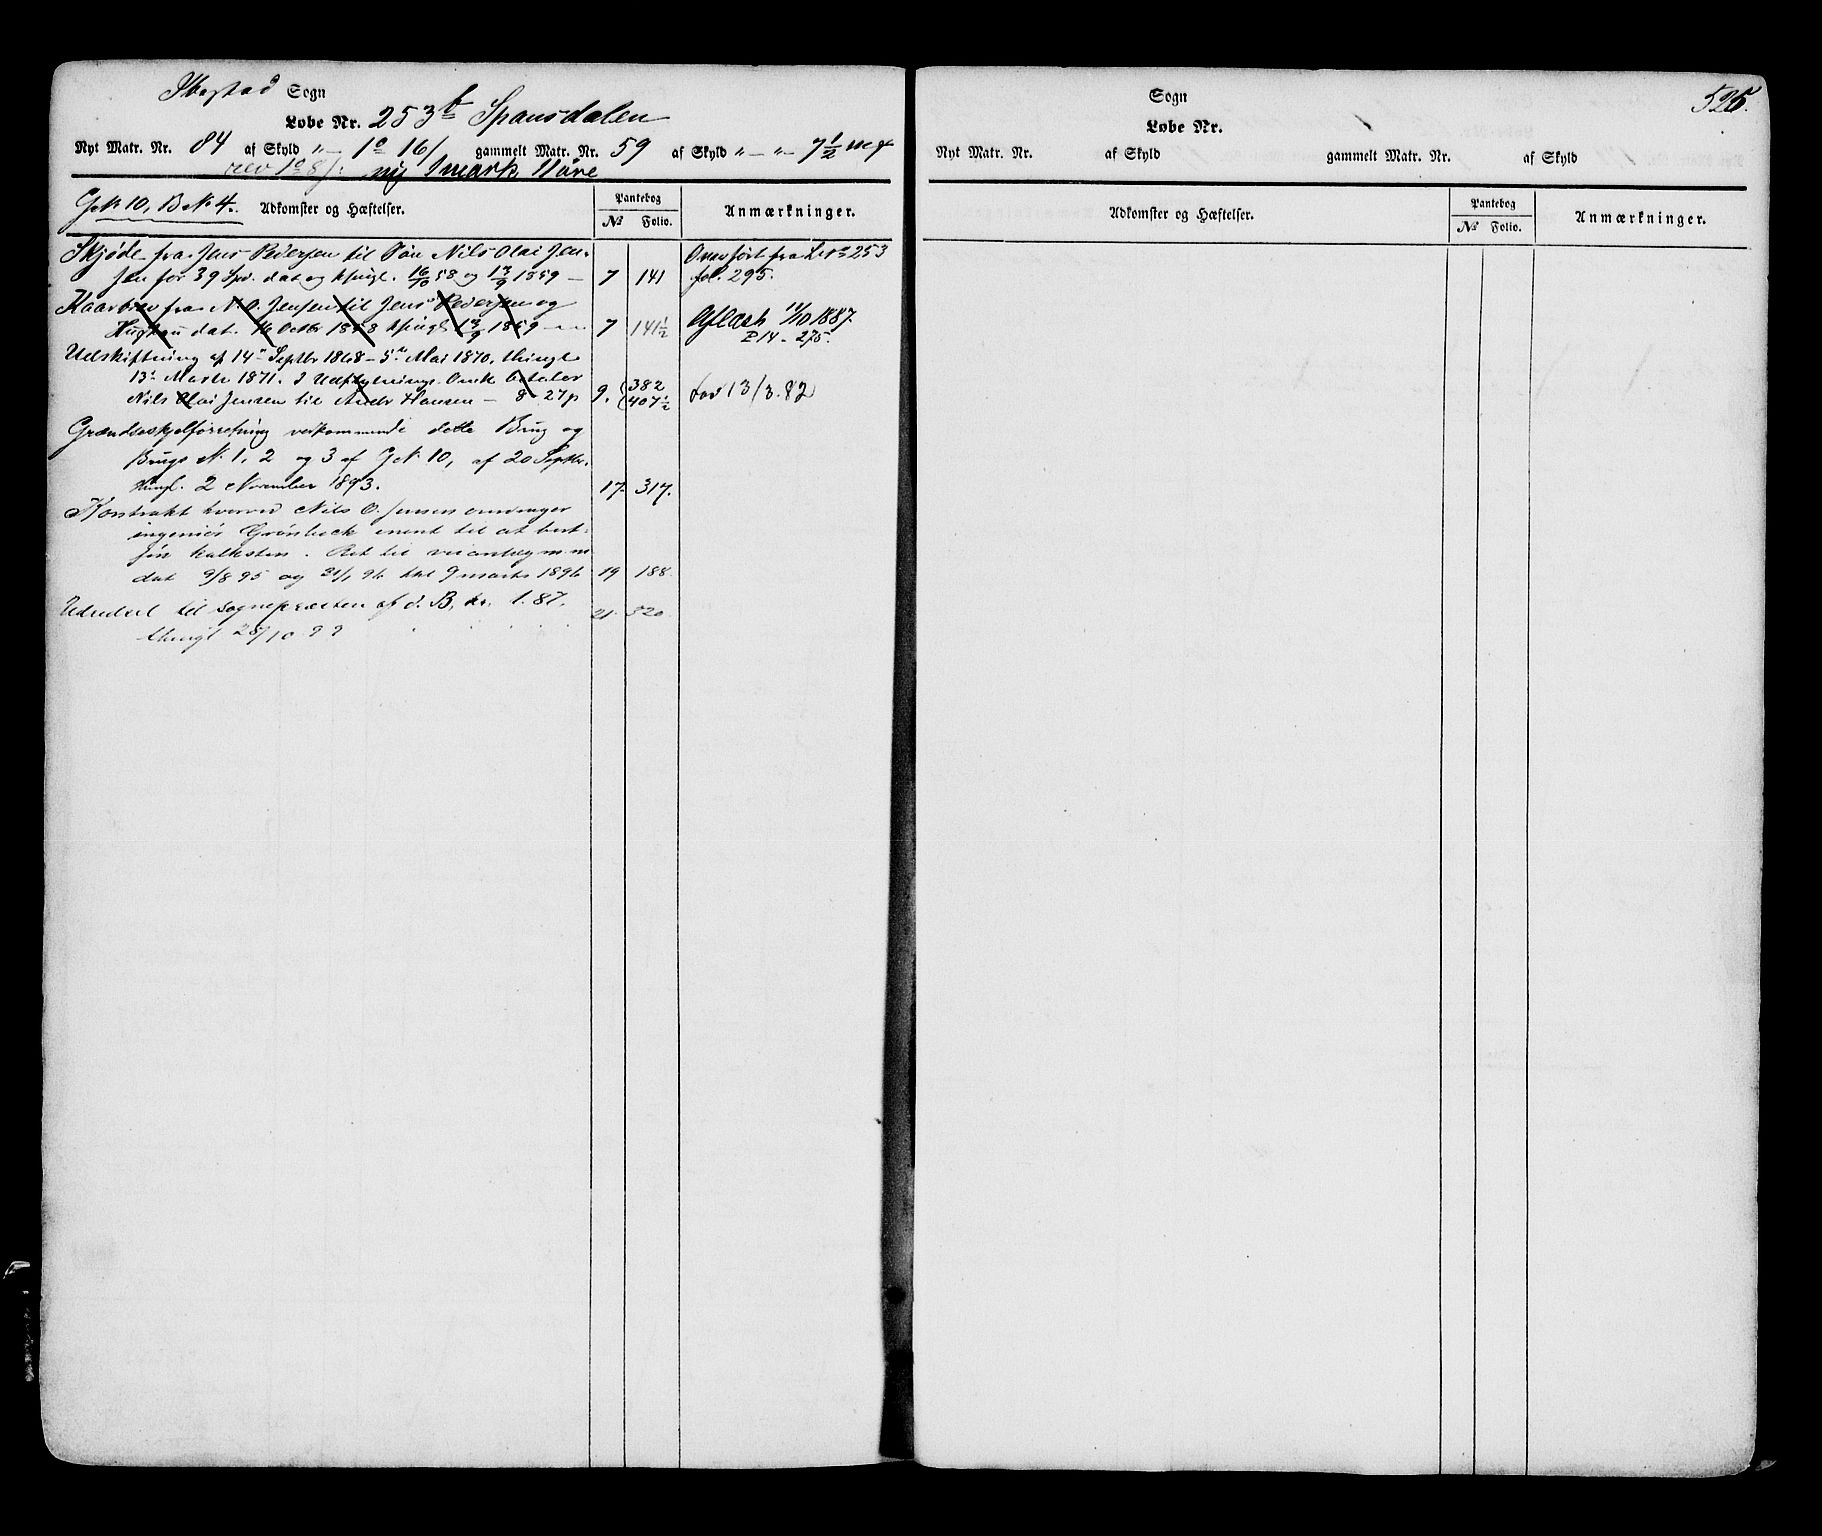 Ibestad Sogn
Løbe Nr. 253b Spansdalen
Nyt Matr. Nr. 84 af Skyld " — 1 o 16/ gammelt Matr. Nr. 59 af Skyld " — " — 7 1/2 mrk
rev 1 o 8/: ny 1 mark 11 øre
G.N. 10, B.N. 4. Adkomster og Hæftelser.
Pantebog
No Folio.
Anmærkninger.
Skjøde fra Jens Pedersen til Søn Nils Olai Jen-
sen for 39 Spd. dat og thingl. 16/10 58 og 13/9 1859 — 7 141 Overført fra Lno 253 fol. 295.
Kaarbrev fra N. O. Jensen til Jens Pedersen og
Hustru dat. 16 Octbr 1858 thingl 13/9 1859 — 7 141 1/2 Aflæst 11/10 1887.
P 14 - 275.
Udskiftning af 14de Septbr 1868 — 5te Mai 1870, thingl
13de Marts 1871. I Udflytnings Omk betaler
Nils Olai Jensen til Andr Hansen — 8 - 27 p 9. (382 (407 1/2 13/3. 82
Grændseskjelforretning vedkommende dette Brug og
Brugs N. 1, 2 og 3 af G.N. 10, af 20 Septbr.
thingl. 2 November 1893. 17. 317.
Kontrakt hvorved Nils O. Jensen
ingeniør Grønbeck eneret til at bort-
kalksten. Ret til veianlæg m. m
dat 9/8 95 og 31/1 96 thl 9 marts 1896 19 188.
Udredsel til sognepræsten af d. B. kr. 1.87.
thingl 25/10 99 21. 520.
Sogn 525.
Løbe Nr.
Nyt Matr. Nr. af Skyld gammelt Matr. Nr. af Skyld
Adkomster og Hæftelser.
Pantebog
No Folio.
Anmærkninger.